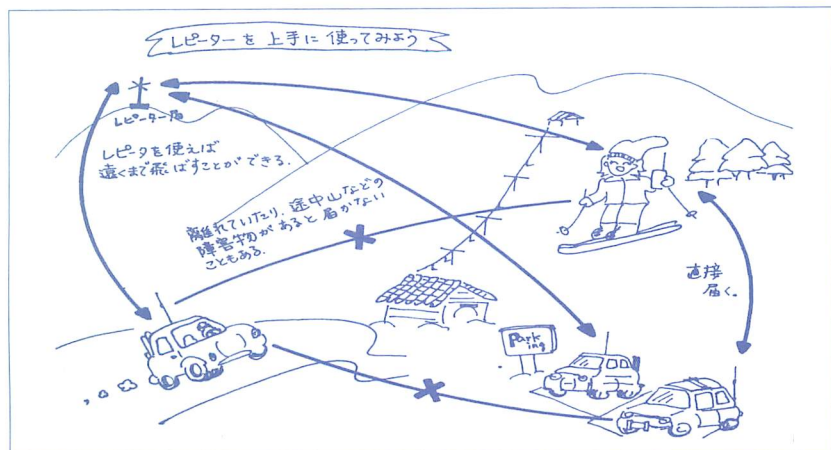 レピーターを上手に使ってみよう
レピーター局
レピータを使えば
遠くまで飛ばすことができる.
離れていたり、途中山などの
障害物があると届かない
こともある.
直接
届く.
Park
ing